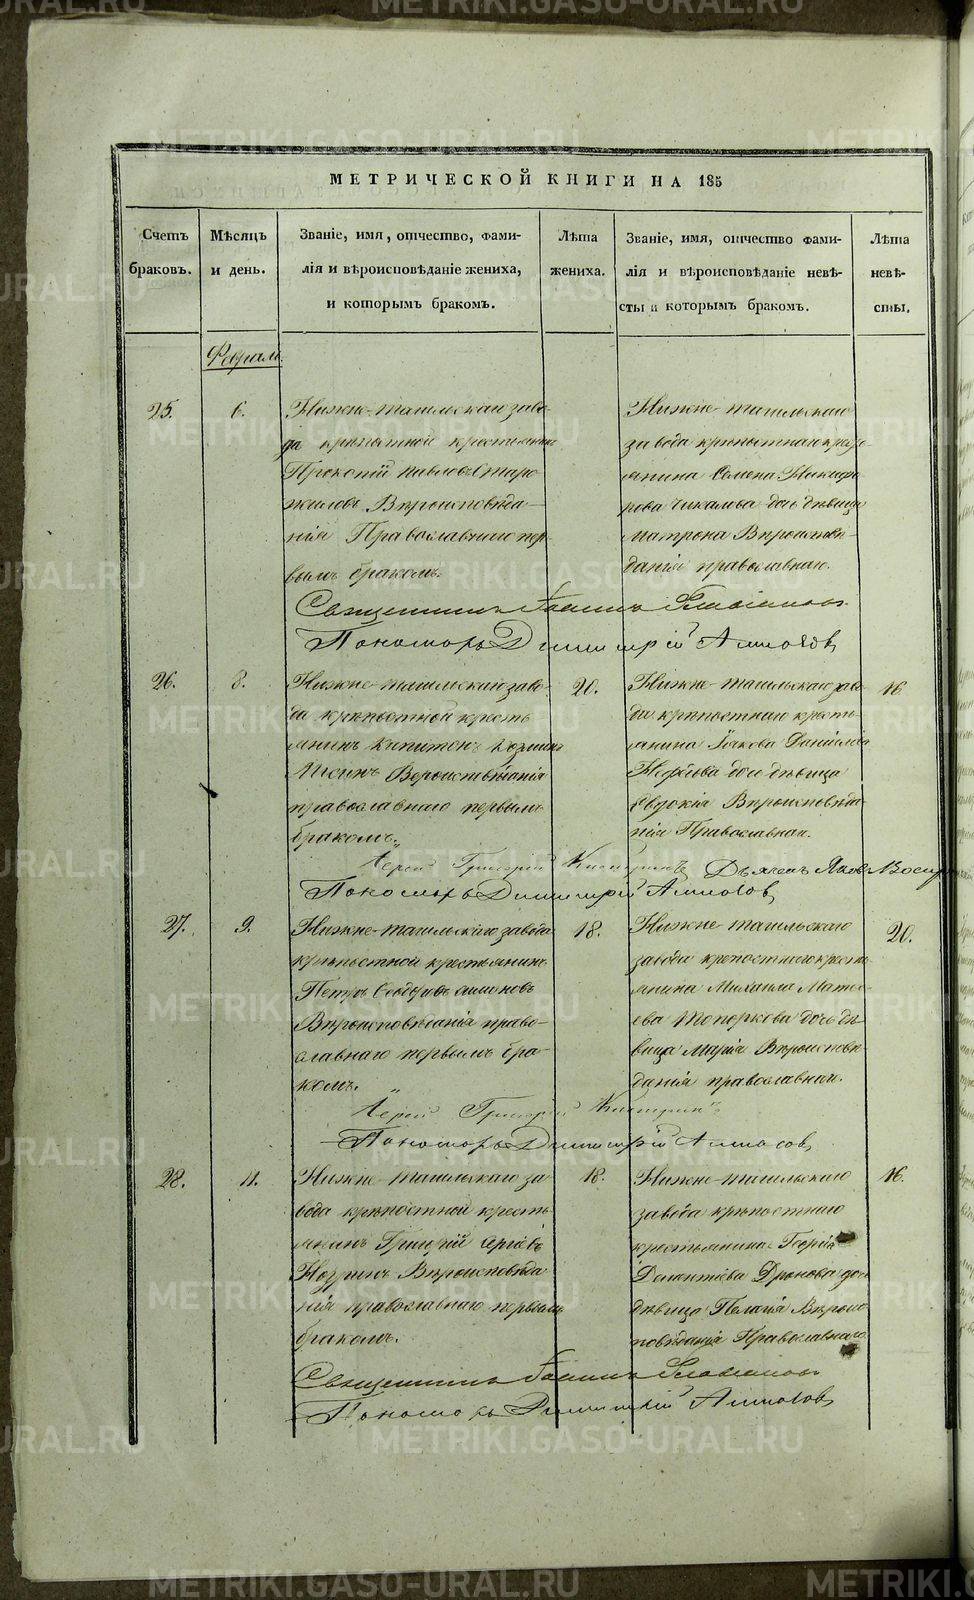 МЕТРИЧЕСКОЙ КНИГИ НА 185
Счетъ
браковъ.
Мѣсяцъ
и день.
Званіе, имя, отчество, фами-
лія и вѣроисповѣданіе жениха,
и которымъ бракомъ.
Лѣта
жениха.
Званіе, имя, отчество фами-
лія и вѣроисповѣданіе невѣ-
сты и которымъ бракомъ.
Лѣта
невѣ-
сты.
25.
6.
Нижне-тагильскаго заво-
да крѣпостной крестьянинъ
Прокопій Павловъ Старо
жиловъ Вѣроисповѣда-
нія Православнаго пер-
вымъ бракомъ.
Нижне-тагильскаго
завода крѣпостнаго кресть-
янина Семена Никифо
рова дочь дѣвица
Матрона Вѣроисповѣ-
данія православнаго.
Священникъ Іоаннъ
Пономарь Димитрій
26.
8.
Нижне-тагильскаго заво-
да крѣпостной кресть
янинъ Капитонъ Козминъ
Лисинъ Вероисповѣданія
православнаго первымъ
бракомъ.
20.
Нижне-тагильскаго заво-
да крѣпостнаго кресть-
янина Іакова Даніилова
дочь дѣвица
Евдокія Вѣроисповѣда-
нія Православнаго.
16.
Іерей Григорій
Дьячекъ Яковъ
Пономарь Димитрій
27.
9.
Нижне-тагильскаго завода
крѣпостной крестьянинъ
Петръ Ѳеодоровъ
Вѣроисповѣданія право-
славнаго первымъ бра-
комъ.
18.
Нижне-тагильскаго
завода крепостнаго кресть
янина Михаила Матѳ-
ева Топоркова дочь дѣ-
вица Марія Вѣроисповѣ-
данія православнаго.
20.
Іерей Григорій
Пономарь Димитрій
28.
11.
Нижне-тагильскаго за
вода крѣпостной кресть
янинъ Григорій Сергіевъ
Вѣроисповѣда
нія православнаго первымъ
бракомъ.
18.
Нижне-тагильскаго
завода крѣпостнаго
крестьянина Георгія
Дронова дочь
дѣвица Пелагія Вѣроис
повѣданія Православнаго
16.
Священникъ Іоаннъ
Пономарь Димитрій
METRIKI.GASO-URAL.RU